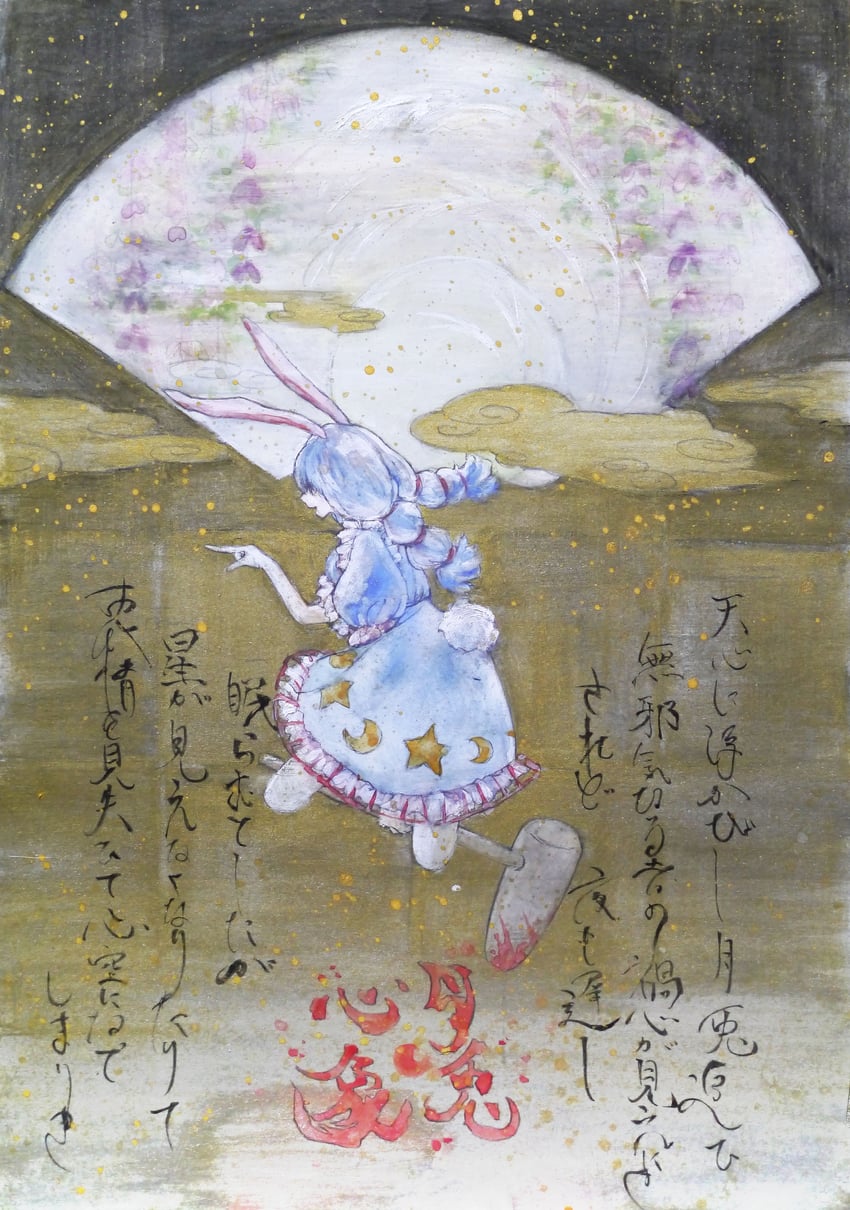 天心に浮かびし月兎追ひ
無邪気なる者の禍心が見えにき
されど 夜も遅し
眠らむてしたが
星が見えなくなりたりて
表情を見失ひて心空になで
しまりき
月兎
心象